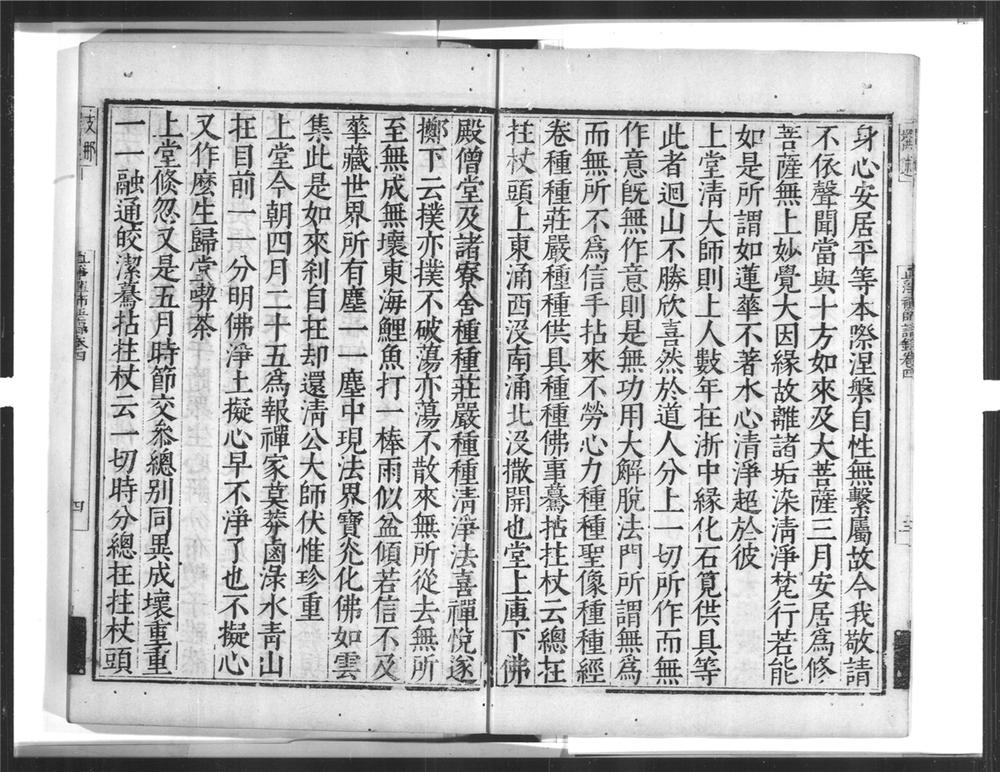 身心安居平等本際涅槃自性無繫屬故今我敬請
不依聲聞當與十方如來及大菩薩三月安居爲修
菩薩無上妙覺大因緣故離諸垢染淸淨梵行若能
如是所謂如蓮華不著水心清淨超於彼
上堂淸大師則上人數年在浙中緣化石筧供具等
此者迴山不勝欣喜然於道人分上一切所作而無
作意旣無作意則是無功用大解脫法門所謂無爲
而無所不爲信手拈來不勞心力種種聖像種種經
卷種種莊嚴種種供具種種佛事驀拈拄杖云總在
拄杖頭上東涌西沒南涌北沒撒開也堂上庫下佛
殿僧堂及諸寮舍種種莊嚴種種淸淨法喜禪悅遂
擲下云撲亦撲不破蕩亦蕩不散來無所從去無所
至無成無壞東海鯉魚打一棒雨似盆傾若信不及
華藏世界所有塵一一塵中現法界寶光化佛如雲
集此是如來刹自在却還淸公大師伏惟珍重
上堂今朝四月二十五爲報禪家莫莽鹵淥水靑山
在目前一一分明佛淨土擬心早不淨了也不擬心
又作麼生歸堂喫茶
上堂倐忽又是五月時節交參總別同異成壞重重
一一融通皎潔驀拈拄杖云一切時分總在拄杖頭
四